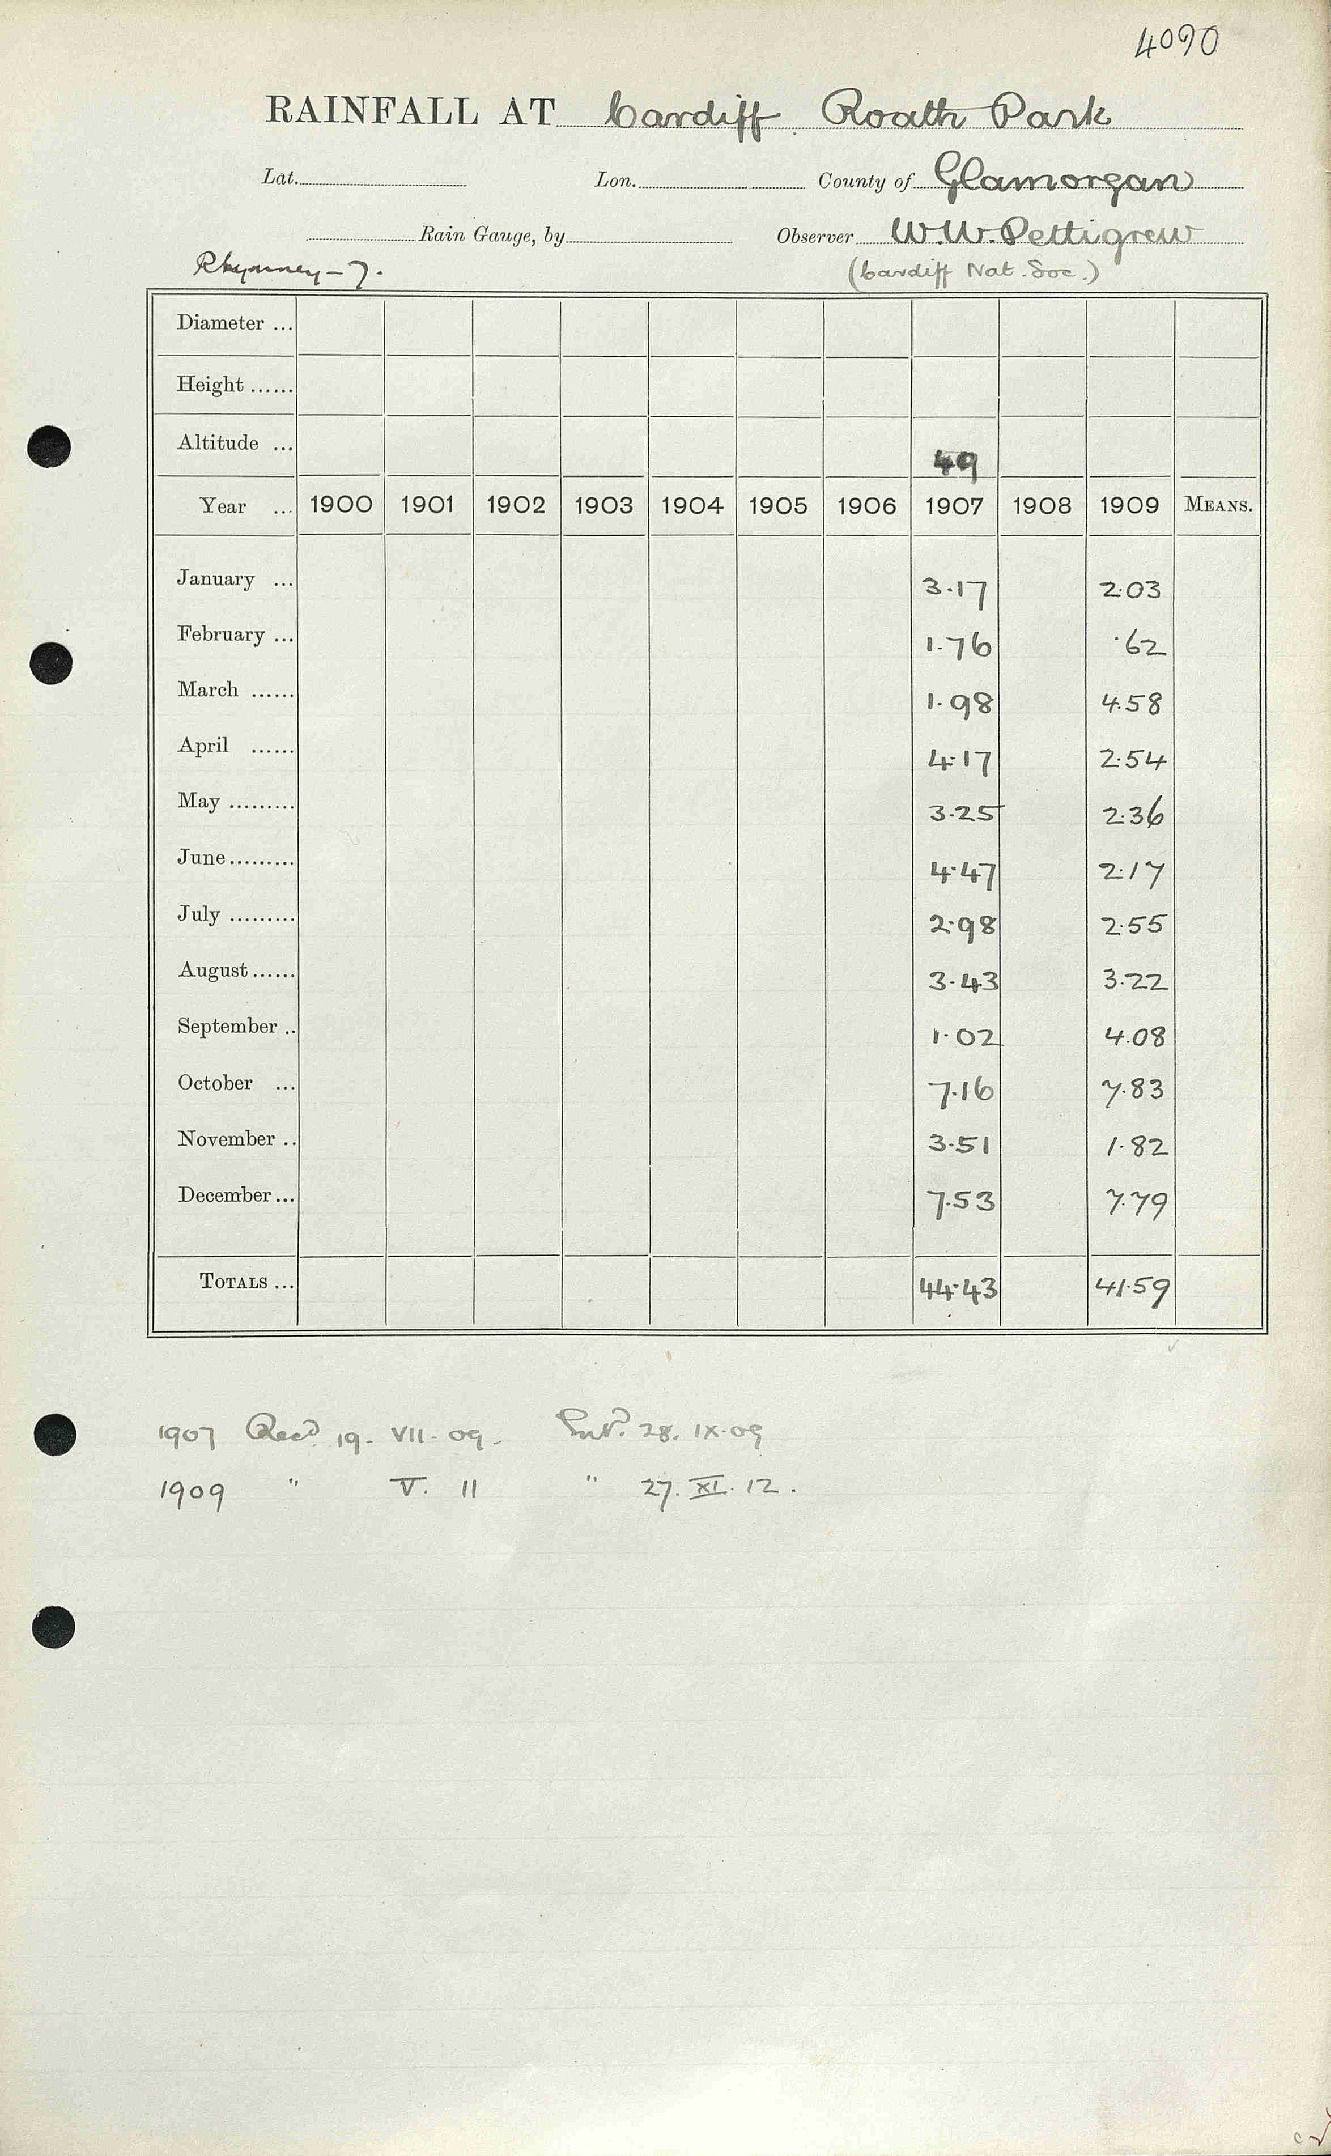 4090
RAINFALL AT Cardiff. Roath Park
Lat. Lon. County of Glamorgan
Rain Gauge, by Observer W.W. Pettigrew
Rhymney - 7. (Cardiff Nat. Soc.)
Diameter ...
Height ......
Altitude ... 49
Year ... 1900 1901 1902 1903 1904 1905 1906 1907 1908 1909 MEANS.
January ... 3.17 2.03
February ... 1.76 .62
March ...... 1.98 4.58
April ...... 4.17 2.54
May ......... 3.25 2.36
June ......... 4.47 2.17
July ......... 2.98 2.55
August ...... 3.43 3.22
September .. 1.02 4.08
October ... 7.16 7.83
November .. 3.51 1.82
December ... 7.53 7.79
TOTALS ... 44.43 41.59
1907 Recd. 19. VII. 09. Entd. 28. IX. 09
1909 " V. 11 " 27. XI. 12.